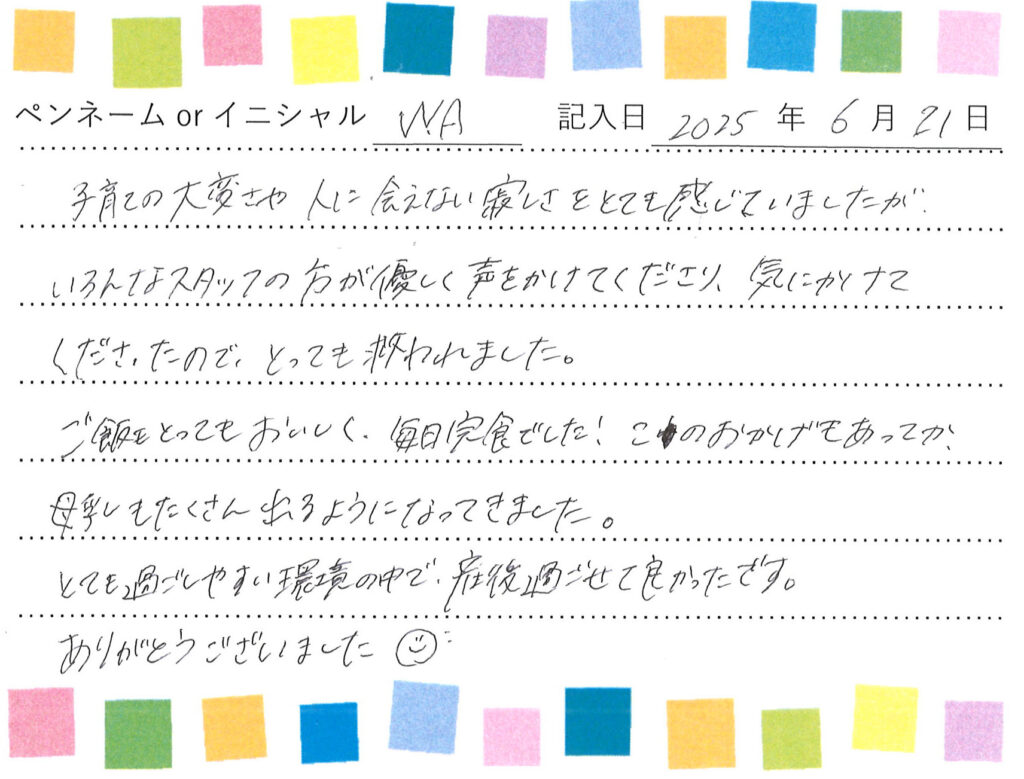 ペンネーム or イニシャル W.A 記入日 2025 年 6 月 21 日
子育ての大変さや 人に会えない寂しさをとても感じていましたが、
いろんなスタッフの方が優しく声をかけてくださり、気にかけて
くださったので、とっても救われました。
ご飯もとってもおいしく、毎日完食でした！このおかげもあってか、
母乳もたくさん出るようになってきました。
とても過ごしやすい環境の中で、産後過ごせて良かったです。
ありがとうございました